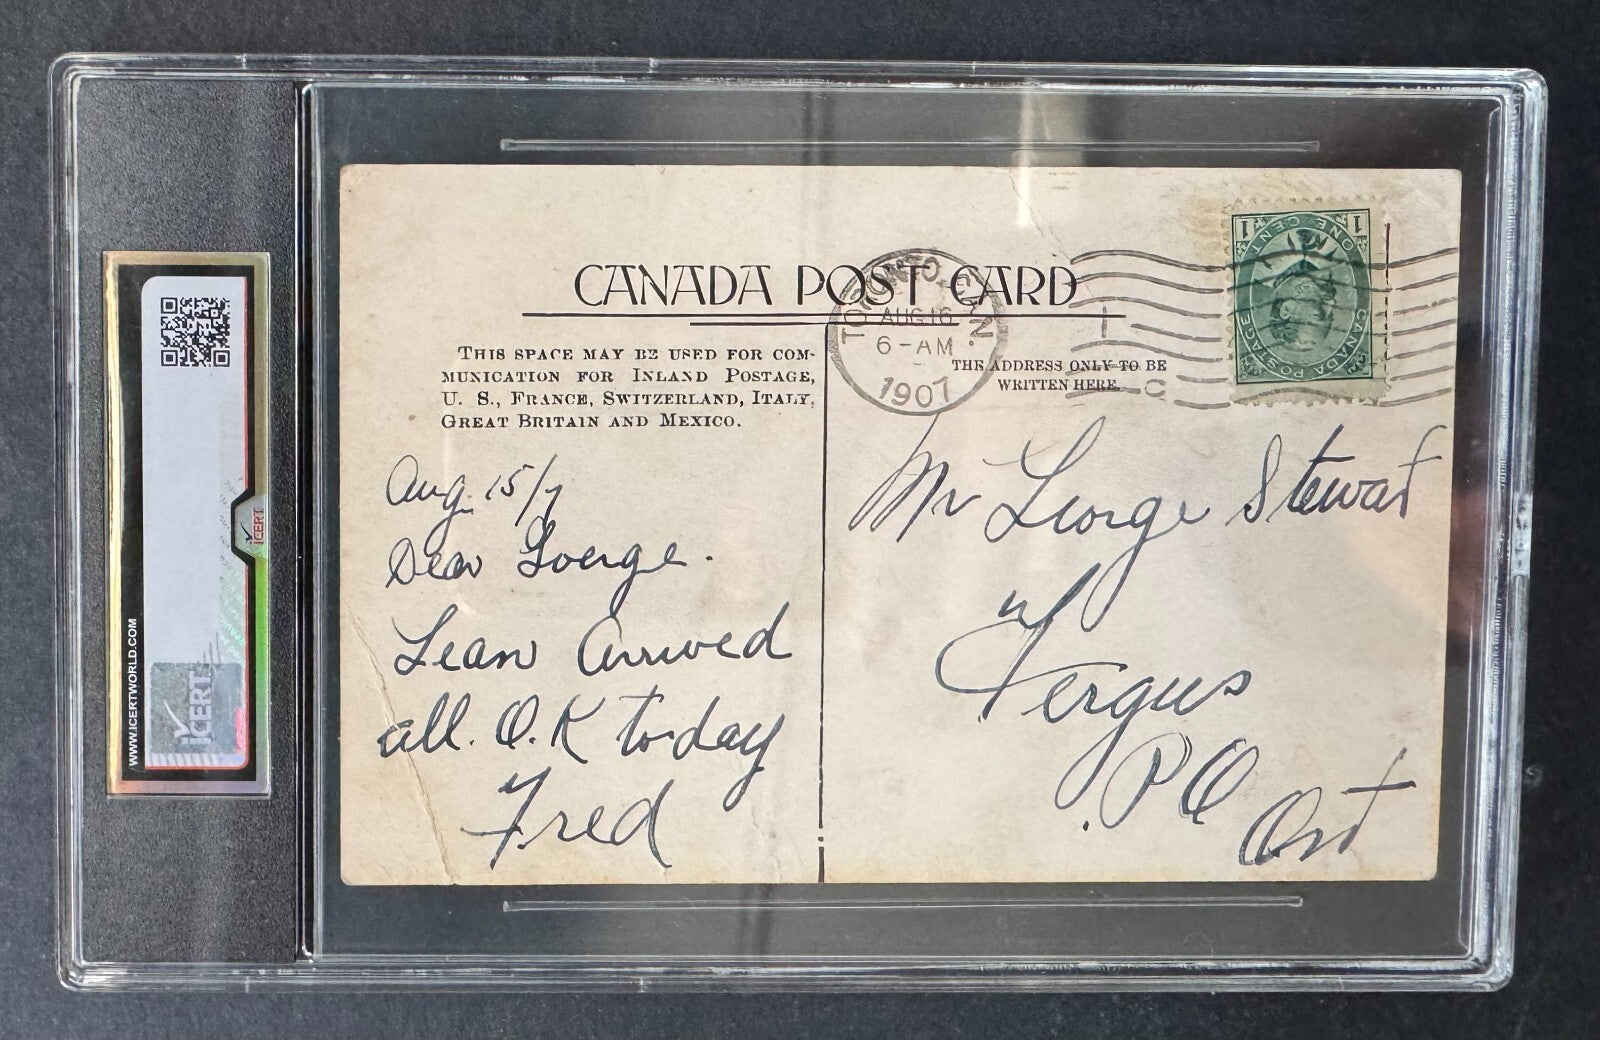 CANADA POST CARD
THIS SPACE MAY BE USED FOR COM-
MUNICATION FOR INLAND POSTAGE,
U. S., FRANCE, SWITZERLAND, ITALY,
GREAT BRITAIN AND MEXICO.
THE ADDRESS ONLY TO BE
WRITTEN HERE.
TORONTO, CAN.
AUG 16
6-AM
1907
1 1
ONE CENT
CANADA POSTAGE
Aug. 15/7
Dear Goerge.
Lean Arrived
all. O.K to-day
Fred
Mr George Stewart
Fergus
P O
Ont
WWW.ICERTWORLD.COM
iCERT
iCERT